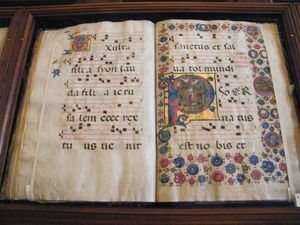 Exulta
filia syon lau
da filia ieru
salem ecce rex
tuus uenit
sanctus et sal
uator mundi
PUER
natus
est nobis et